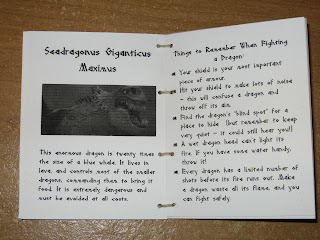 Seadragonus Giganticus
Maximus
This enormous dragon is twenty times
the size of a blue whale. It lives in
lava, and controls most of the smaller
dragons, commanding them to bring it
food. It is extremely dangerous and
must be avoided at all costs.
Things to Remember When Fighting
a Dragon:
Your shield is your most important
piece of armour.
Hit your shield to make lots of noise
- this will confuse a dragon and
throw off its aim.
Find the dragon's "blind spot" for a
place to hide. (but remember to keep
very quiet - it could still hear you!)
A wet dragon head can't light its
fire. If you have some water handy,
throw it!
Every dragon has a limited number of
shots before its fire runs out. Make
a dragon waste all its flame, and you
can fight safely.